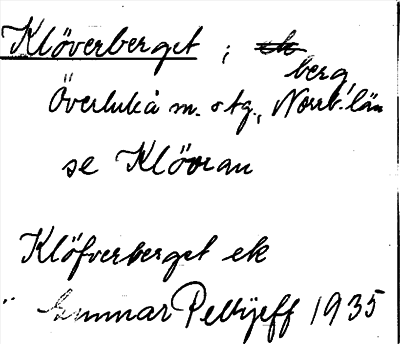 Klöverberget ; ek
berg,
Överluleå m. stg., Norrb. län
se Klövran
Klöfverberget ek
Gunnar Pellijeff 1935